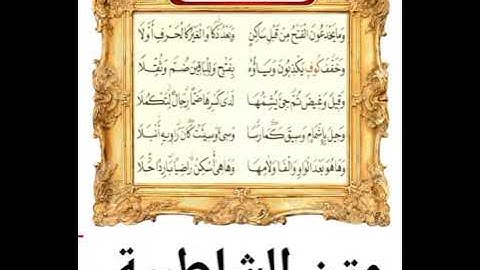 وَمَا يَخْدَعُونَ الْفَتْحُ مِنْ قَبْلِ سَاكِنٍ وَبَعْدُ ذَكَا وَالْغَيْرُ كَالْحَرْفِ أَوَّلَا
وَخَفَّفَ كُوفٍ يَكْذِبُونَ وَيَاؤُهُ بِفَتْحٍ وَلِلْبَاقِينَ ضُمَّ وَثُقِّلَا
وَقِيلَ وَغِيضَ ثُمَّ جِيءَ يُشِمُّهَا لَدَى كَسْرِهَا ضَمًّا رِجَالٌ لِتَكْمُلَا
وَحِيلَ بِإِشْمَامٍ وَسِيقَ كَمَا رَسَا وَسِيءَ وَسِيئَتْ كَانَ رَاوِيهِ أَنْبَلَا
وَهَا هُوَ بَعْدَ الْوَاوِ وَالْفَا وَلَامِهَا وَهَا هِيَ أَسْكِنْ رَاضِيًا بَارِدًا حَلَا
متن الشاطبية